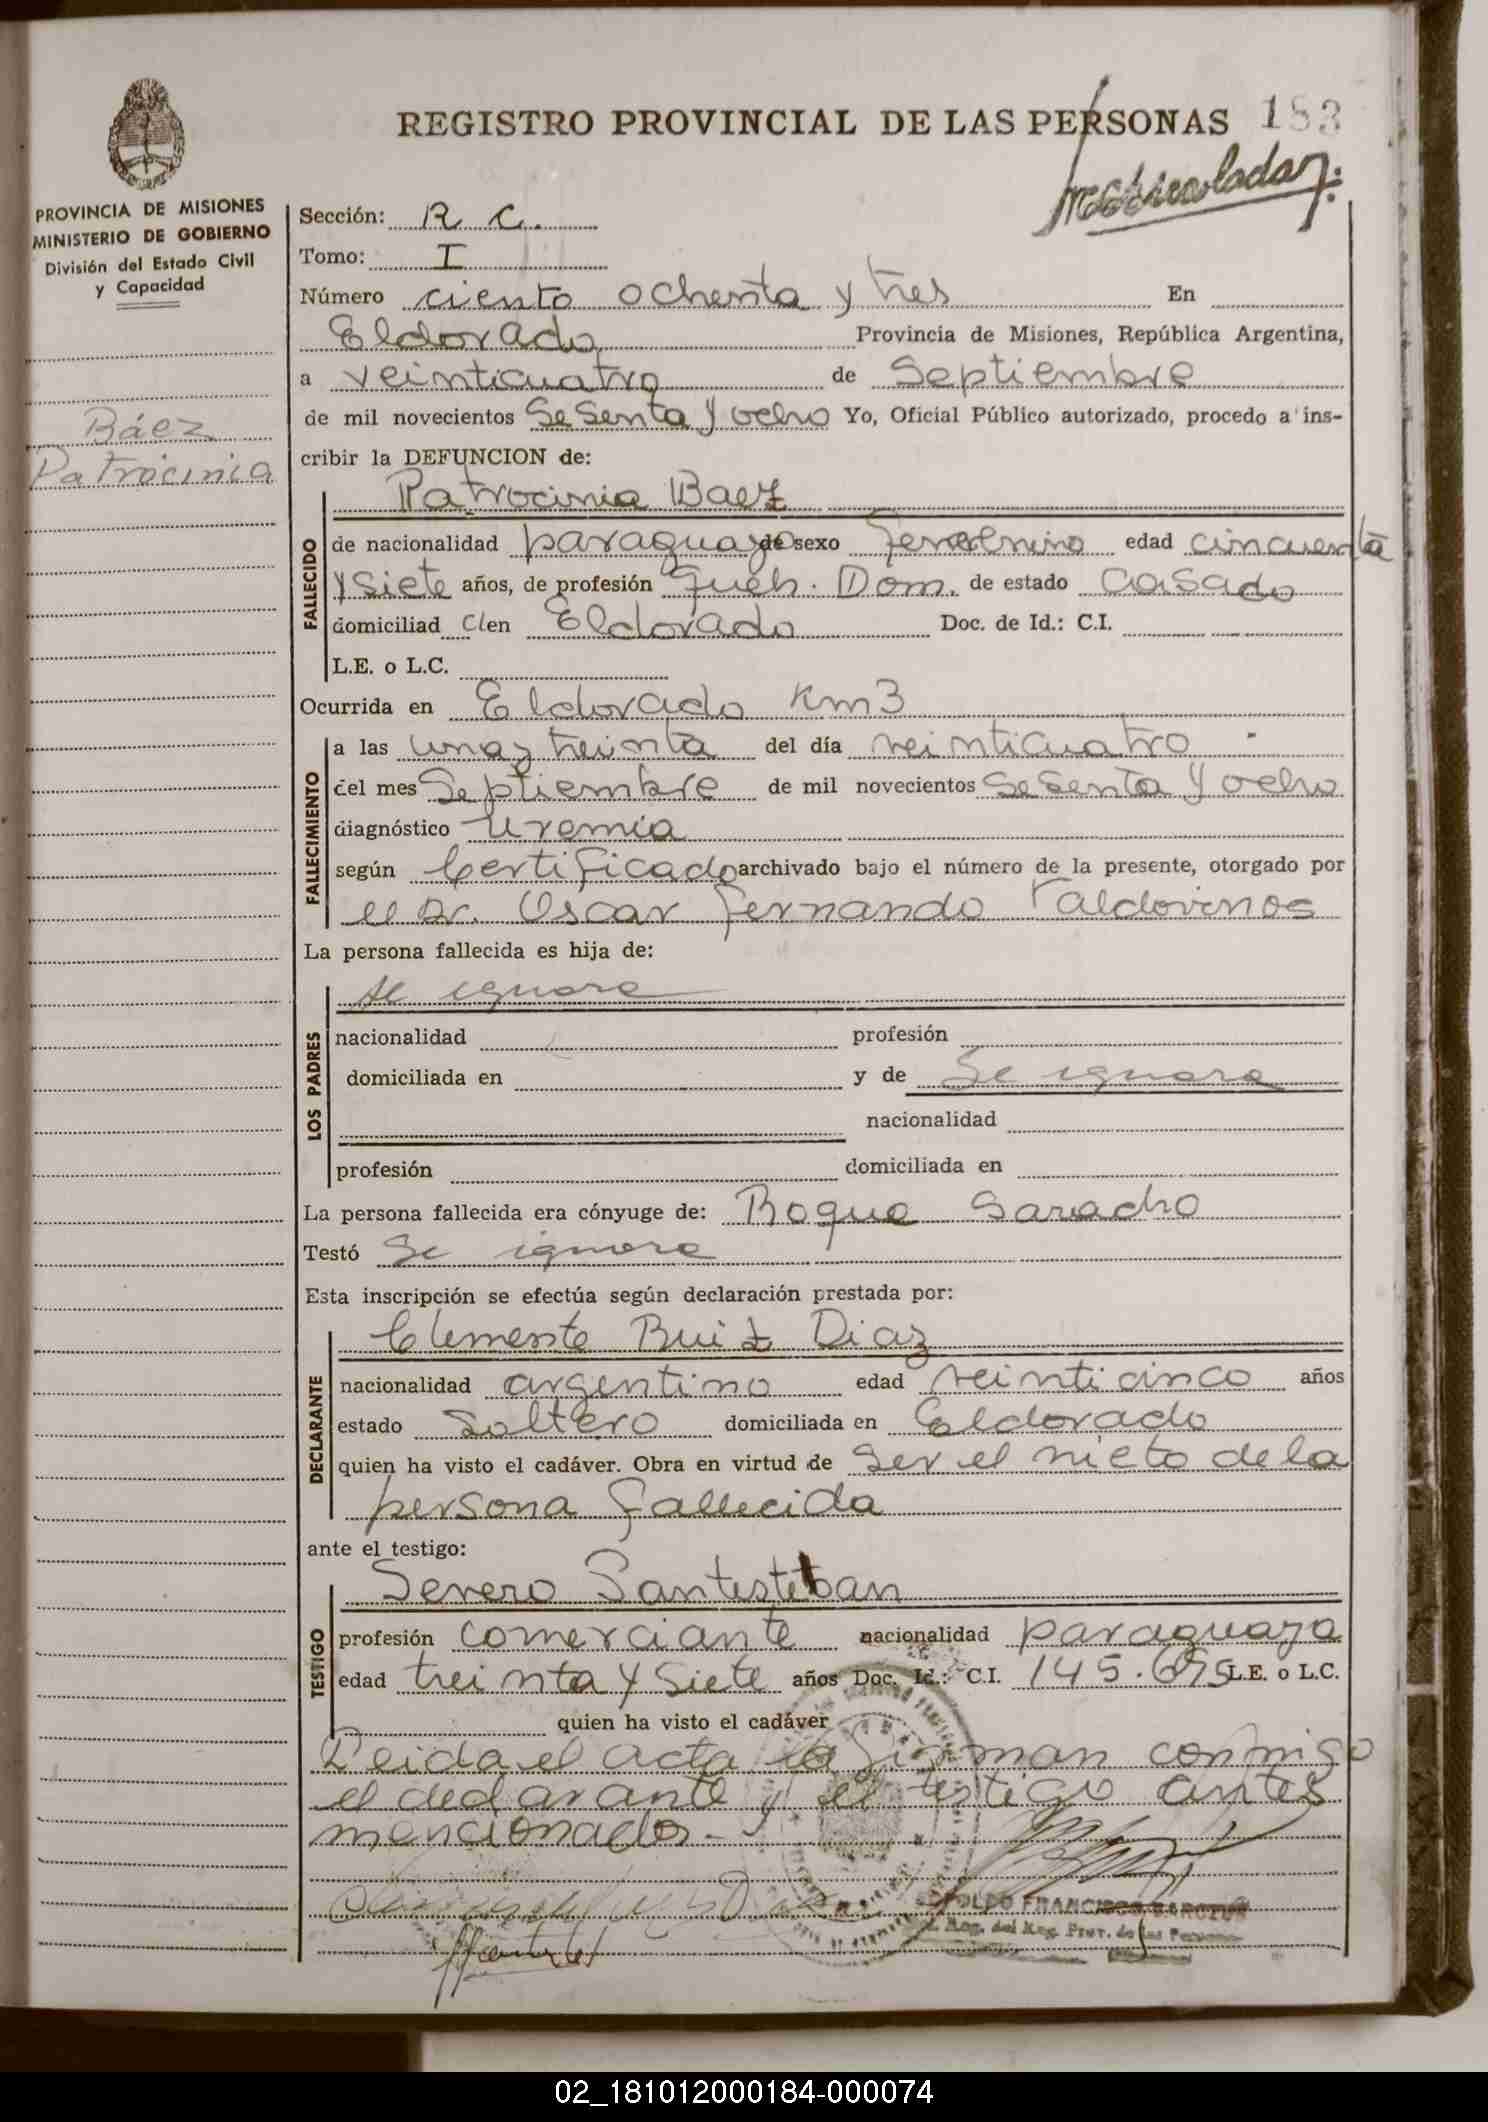 REGISTRO PROVINCIAL DE LAS PERSONAS 183
PROVINCIA DE MISIONES
MINISTERIO DE GOBIERNO
División del Estado Civil
y Capacidad
Báez
Patrócinia
Sección: R C.
Tomo: I
Número ciento ochenta y tres En
Eldorado Provincia de Misiones, República Argentina,
a veinticuatro de Septiembre
de mil novecientos Sesenta y ocho Yo, Oficial Público autorizado, procedo a ins-
cribir la DEFUNCION de:
Patrocinia Baez
FALLECIDO
de nacionalidad paraguaya de sexo femenino edad cincuenta
y siete años, de profesión Queh. Dom. de estado Casado
domiciliad a en Eldorado Doc. de Id.: C.I.
L.E. o L.C.
Ocurrida en Eldorado Km3
FALLECIMIENTO
a las una y treinta del día veinticuatro -
del mes Septiembre de mil novecientos Sesenta y ocho
diagnóstico Uremia
según Certificado archivado bajo el número de la presente, otorgado por
el Dr. Oscar Fernando Valdovinos
La persona fallecida es hija de:
LOS PADRES
se ignora
nacionalidad profesión
domiciliada en y de Se ignora
nacionalidad
profesión domiciliada en
La persona fallecida era cónyuge de: Roque Saracho
Testó Se ignora
Esta inscripción se efectúa según declaración prestada por:
DECLARANTE
Clemente Ruiz Diaz
nacionalidad argentino edad veinticinco años
estado Soltero domiciliada en Eldorado
quien ha visto el cadáver. Obra en virtud de Ser el nieto de la
persona fallecida
ante el testigo:
TESTIGO
Severo Santesteban
profesión comerciante nacionalidad paraguaya
edad treinta y Siete años Doc. Id.: C.I. 145.695 L.E. o L.C.
quien ha visto el cadáver
Leida el acta la firman conmigo
el declarante y el testigo antes
mencionados.-
FRANCISCO
02_181012000184-000074